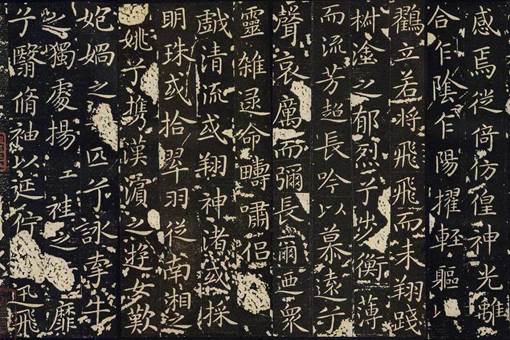 感焉徙倚仿偟神光離
合乍陰乍陽擢輕軀以
鸖立若將飛飛而未翔踐
椒塗之郁烈兮步衡薄
而流芳超長吟以慕遠兮
聲哀厲而彌長爾廼衆
靈雑遝命疇嘯侶或
戯清流或翔神渚或採
明珠或拾翠羽從南湘之
姚兮携漢濵之遊女歎
妃媧之匹兮詠牽牛
之獨處揚袿之靡
兮翳脩袖以延佇迅飛